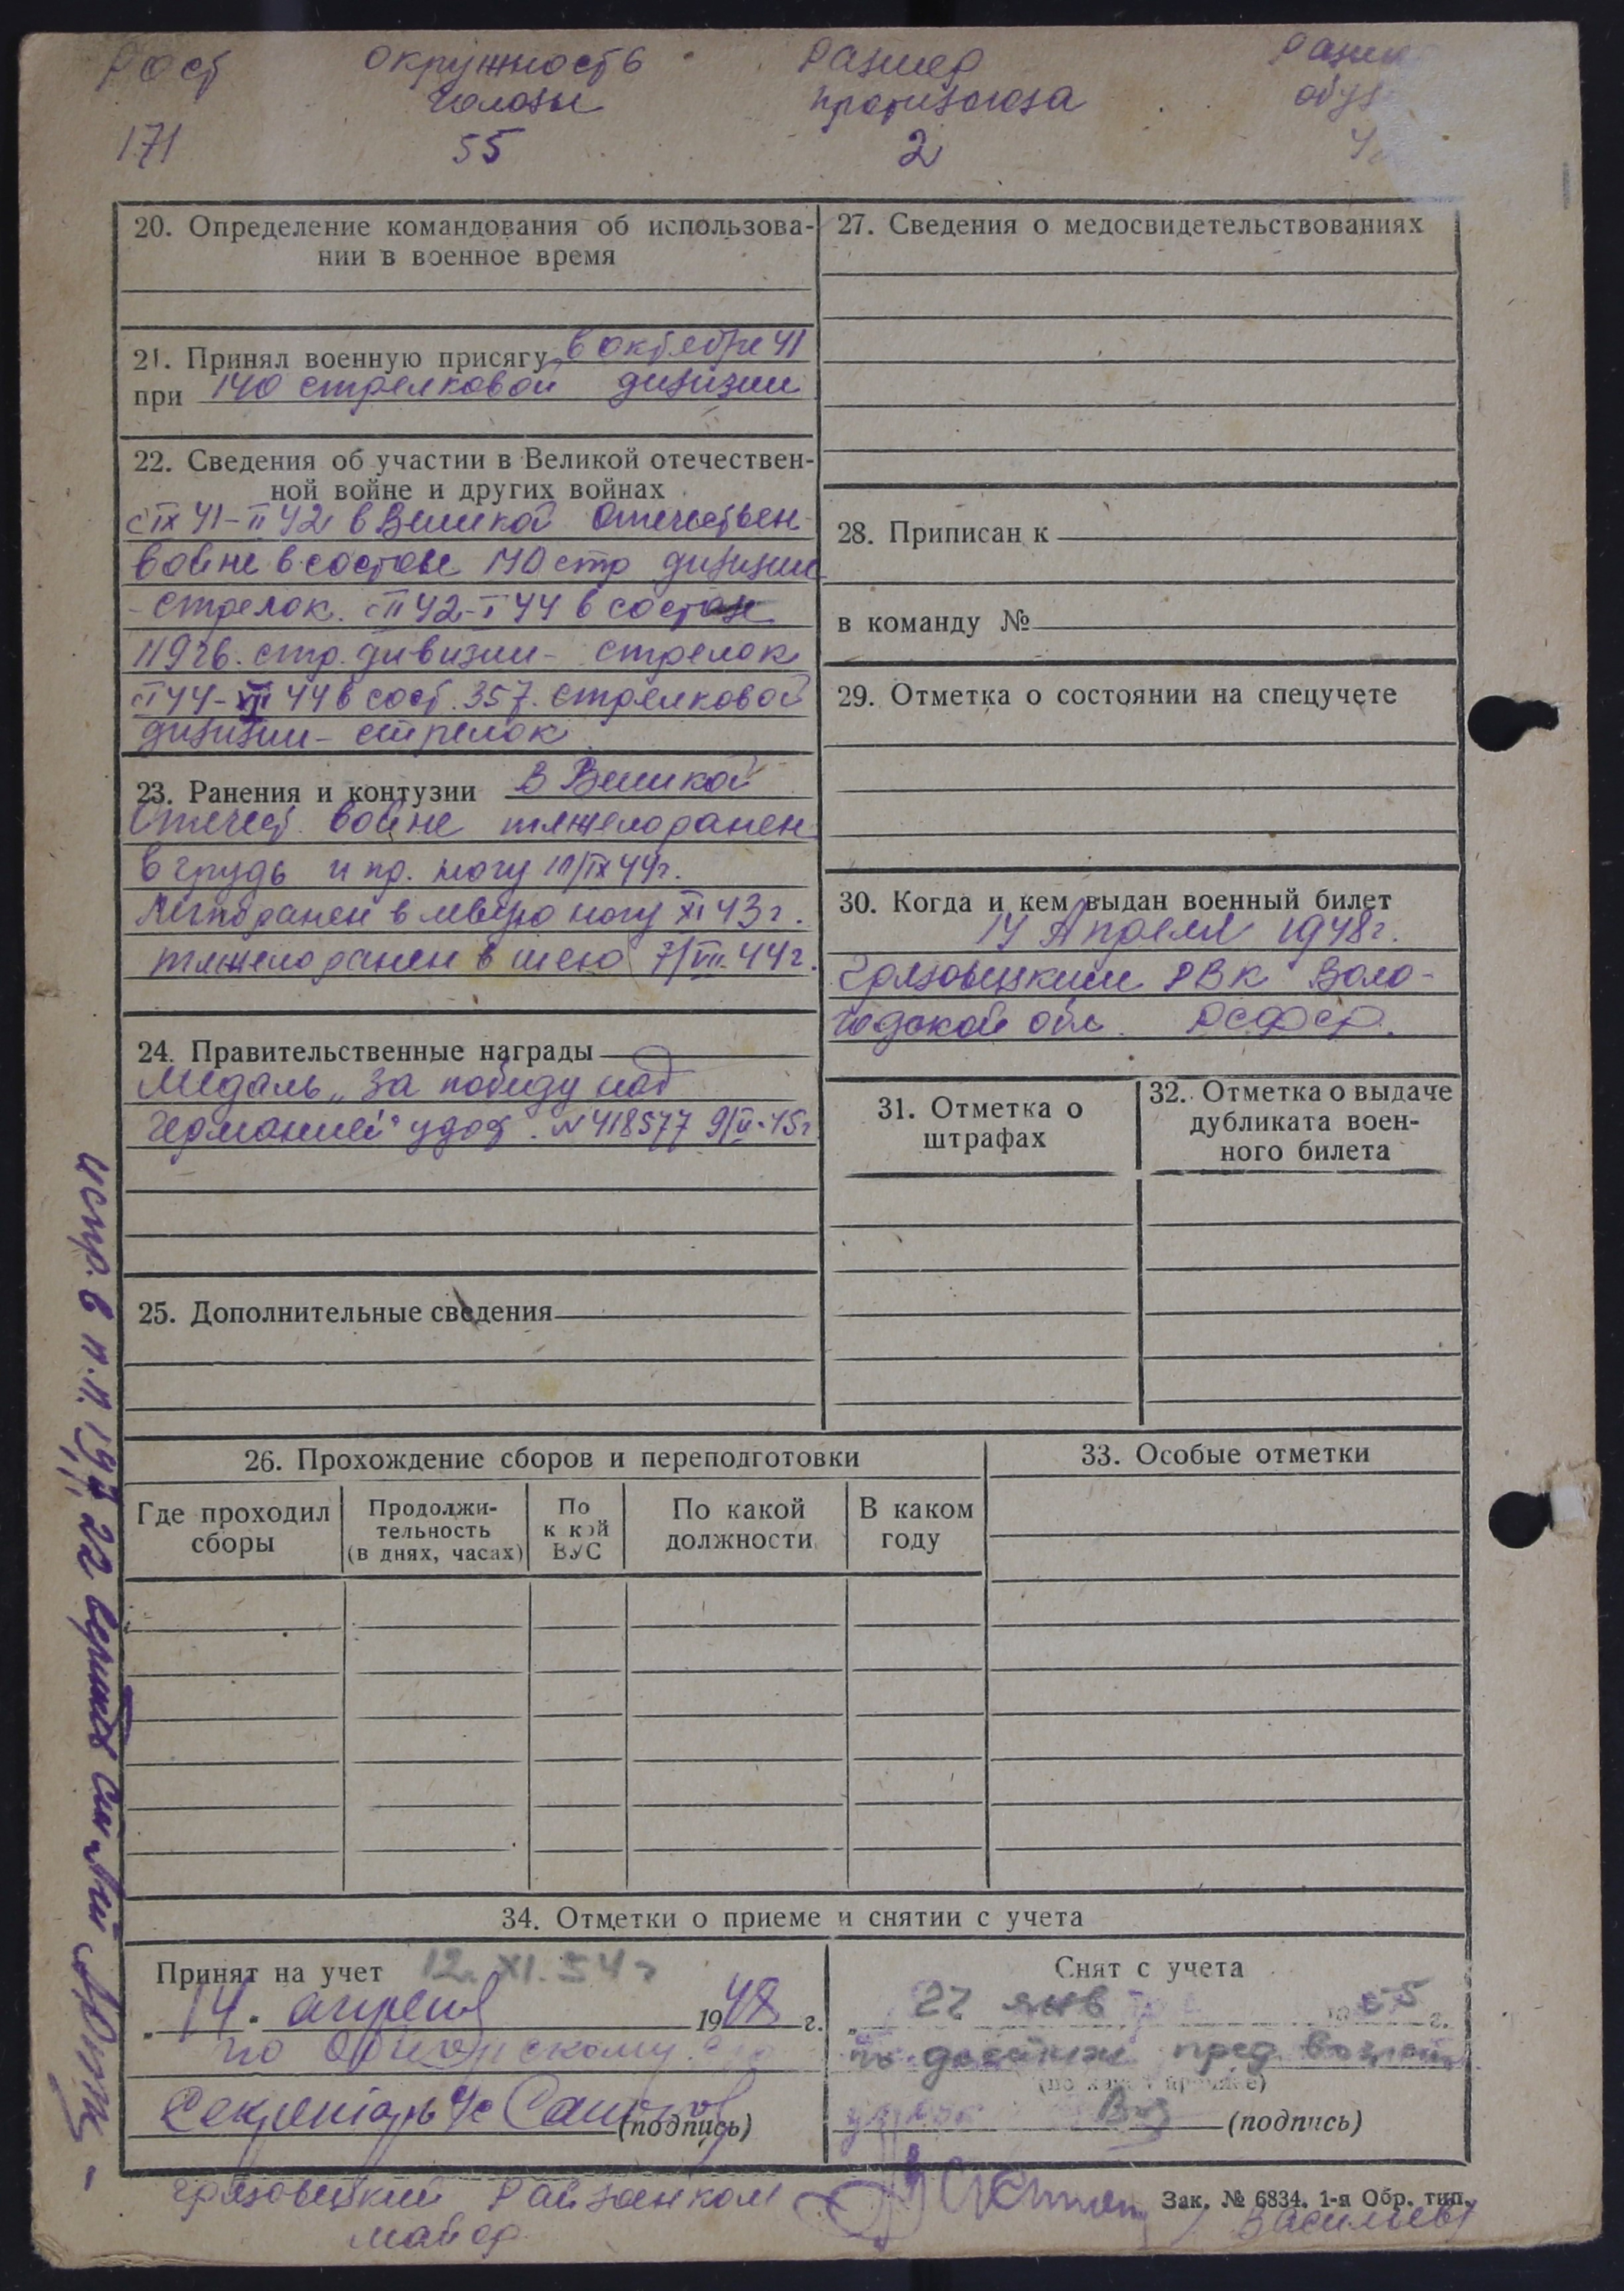 Рост окружность размер
головы противогаза обув
171 55 2
20. Определение командования об использова-
нии в военное время
21. Принял военную присягу в октябре 41
при 140 стрелковой дивизии
22. Сведения об участии в Великой отечествен-
ной войне и других войнах
с IX 41 – II 42 в Великой Отечествен
войне в составе 140 стр дивизии
– стрелок. с II 42 – I 44 в составе
119 гв. стр. дивизии – стрелок
с I 44 – VIII 44 в сост. 357. стрелковой
дивизии – стрелок
23. Ранения и контузии В Великой
Отечест. войне тяжело ранен
в грудь и пр. ногу IX 44 г.
Легко ранен в левую ногу XI 43 г.
тяжело ранен в шею 7/VII. 44 г.
24. Правительственные награды
Медаль „За победу над
Германией" удос. № 418577 9/V-45 г
25. Дополнительные сведения
27. Сведения о медосвидетельствованиях
28. Приписан к
в команду №
29. Отметка о состоянии на спецучете
30. Когда и кем выдан военный билет
14 Апреля 1948 г.
Грязовецким РВК Воло-
годской обл. РСФСР.
31. Отметка о
штрафах
32. Отметка о выдаче
дубликата воен-
ного билета
26. Прохождение сборов и переподготовки
Где проходил
сборы
Продолжи-
тельность
(в днях, часах)
По
к кой
ВУС
По какой
должности
В каком
году
33. Особые отметки
34. Отметки о приеме и снятии с учета
Принят на учет 12. XI. 54 г
14. апреля 1948 г.
по
Секретарь
(подпись)
Снят с учета
22 янв 55 г.
по достиж пред возраст
(подпись)
Грязовецкий Райвоенком
майор
Васильев
Зак. № 6834. 1-я Обр. тип.
испр. в п.п. 19, 22 верить